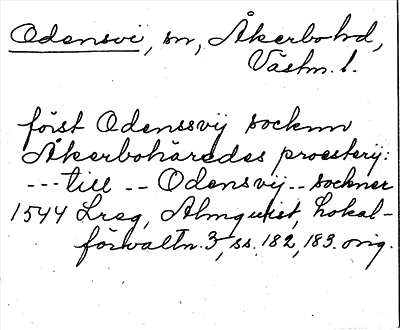 Odensvi, sn, Åkerbohd,
Västm. l.
först Odenssvij socknn
Åkerbohäredes proesterij:
--- till -- Odensvij -- sockner
1544 Lreg, Almquist, Lokal-
förvaltn. 3, ss. 182, 183. orig.